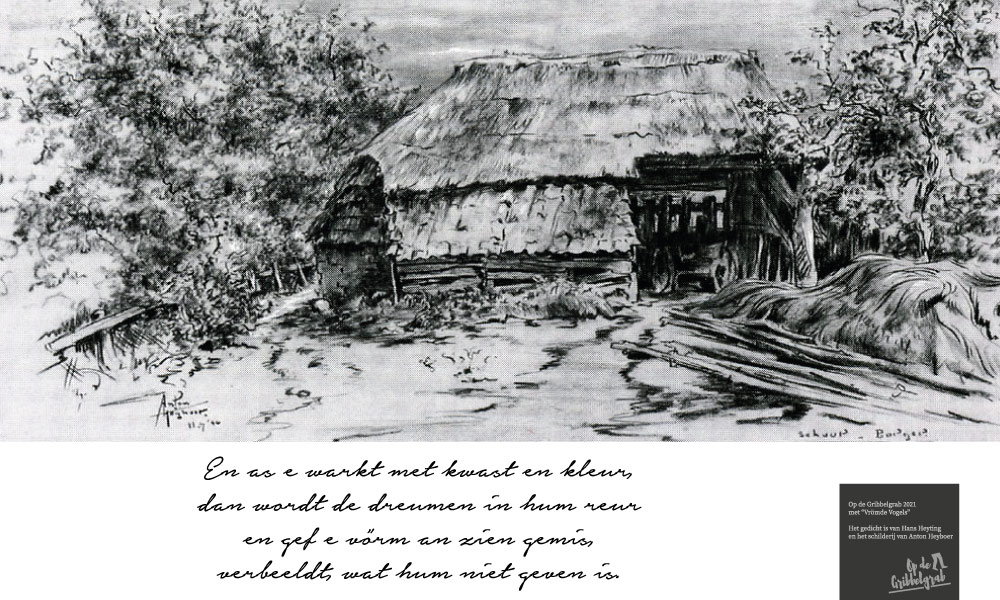 Anton
Heyboer
schuur - Borger
En as e warkt met kwast en kleur,
dan wordt de dreumen in hum reur
en gef e vörm an zien gemis,
verbeeldt, wat hum niet geven is.
Op de Gribbelgrab 2021
met "Vrömde Vogels"
Het gedicht is van Hans Heyting
en het schilderij van Anton Heyboer
Op de
Gribbelgrab